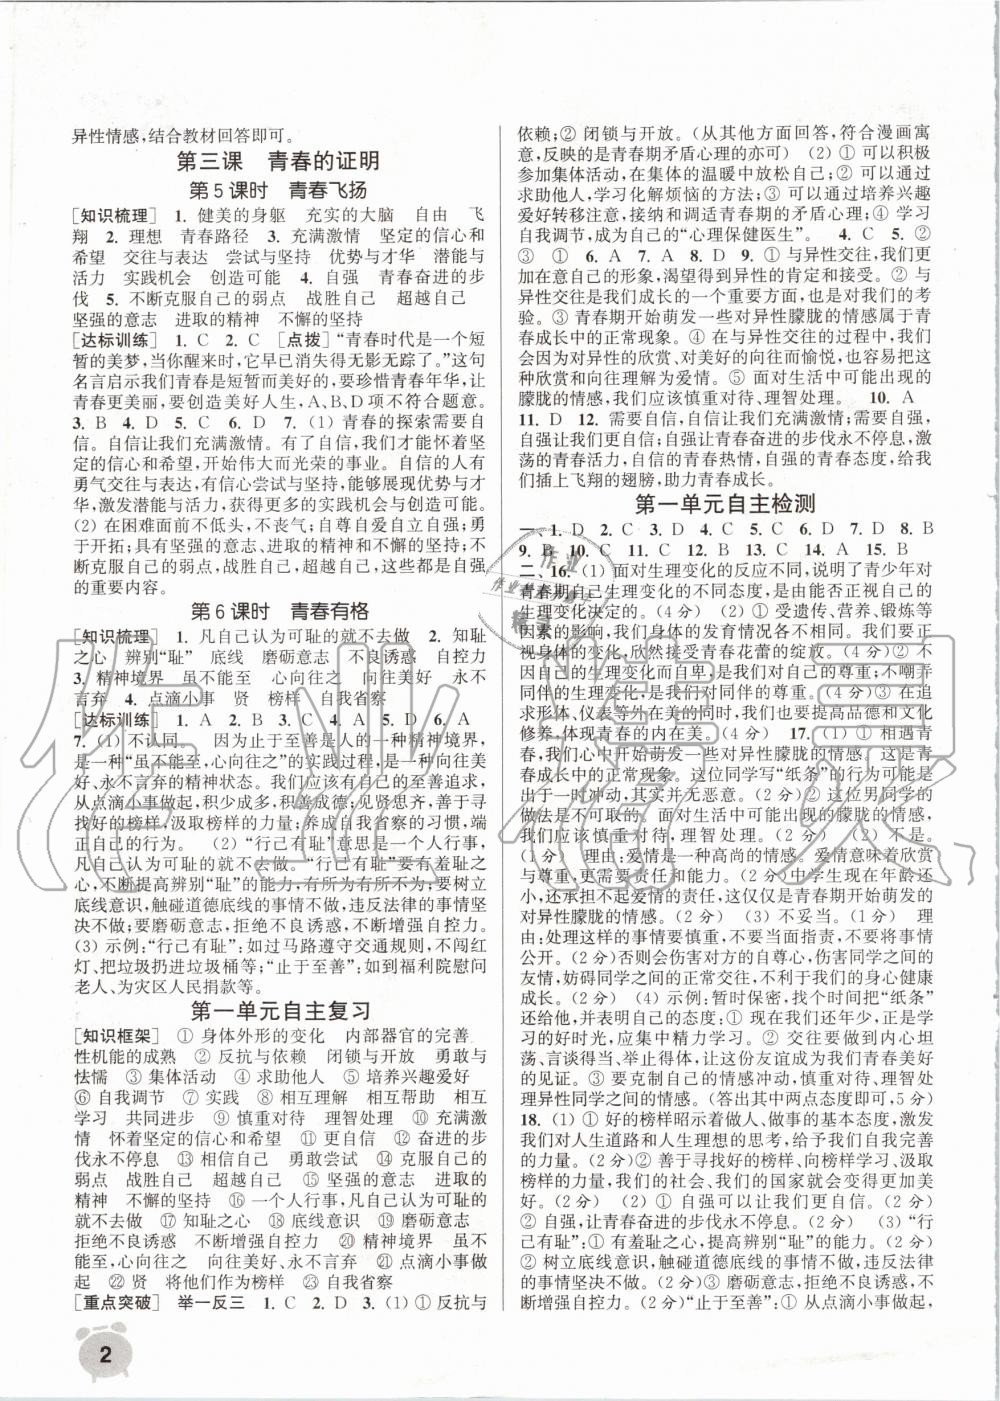 异性情感,结合教材回答即可。
第三课　青春的证明
第 5 课时　青春飞扬
[知识梳理]　1. 健美的身躯　充实的大脑　自由　飞
翔　2. 理想　青春路径　3. 充满激情　坚定的信心和
希望　交往与表达　尝试与坚持　优势与才华　潜能与
活力　实践机会　创造可能　4. 自强　青春奋进的步
伐　5. 不断克服自己的弱点　战胜自己　超越自己
坚强的意志　进取的精神　不懈的坚持
[达标训练]　1. C　2. C　[点拨]“青春时代是一个短
暂的美梦,当你醒来时,它早已消失得无影无踪了。”这句
名言启示我们青春是短暂而美好的,要珍惜青春年华,让
青春更美丽,要创造美好人生,A、B、D项不符合题意。
3. B　4. D　5. C　6. D　7. (1) 青春的探索需要自
信,自信让我们充满激情。有了自信,我们才能怀着坚
定的信心和希望,开始伟大而光荣的事业。自信的人有
勇气交往与表达,有信心尝试与坚持,能够展现优势与才
华,激发潜能与活力,获得更多的实践机会与创造可能。
(2) 在困难面前不低头,不丧气;自尊自爱自立自强;勇
于开拓;具有坚强的意志、进取的精神和不懈的坚持;不
断克服自己的弱点,战胜自己,超越自己,都是青春自强
的重要内容。
第 6 课时　青春有格
[知识梳理]　1. 凡自己认为可耻的就不去做　2. 知耻
之心　辨别“耻”　底线　磨砺意志　不良诱惑　自控力
3. 精神境界　虽不能至　心向往之　向往美好　永不
言弃　4. 点滴小事　贤　榜样　自我省察
[达标训练]　1. A　2. B　3. C　4. A　5. D　6. A
7. (1) 不认同。　因为止于至善是人的一种精神境界,
是一种“虽不能至,心向往之”的实践过程,是一种向往美
好、永不言弃的精神状态。我们应该有自己的至善追求,
从点滴小事做起,积少成多,积善成德;见贤思齐,寻找
好的榜样,汲取榜样的力量;养成自我省察的习惯,端
正自己的行为。　(2)“行己有耻”意思是一个人行事,
凡自己认为可耻的就不去做。“行己有耻”要有羞耻之
心,不断提高辨别“耻”的能力,有所为有所不为;要树立
底线意识,触碰道德底线的事情不做,违反法律的事情
坚决不做;要磨砺意志,拒绝不良诱惑,不断增强自控力。
(3) 示例:“行己有耻”:如过马路遵守交通规则,不闯红
灯、把垃圾扔进垃圾桶等;“止于至善”:如到福利院慰问
老人、为灾区人民捐款等。
第一单元自主复习
[知识框架]　① 身体外形的变化　内部器官的完善
性机能的成熟　② 反抗与依赖　闭锁与开放　勇敢与
怯懦　③ 集体活动　④ 求助他人　⑤ 培养兴趣爱好
⑥ 自我调节　⑦ 实践　⑧ 相互理解　相互帮助　相互
学习　共同进步　⑨ 慎重对待　理智处理　⑩ 充满激
情　怀着坚定的信心和希望　⑪ 更自信　⑫ 奋进的步
伐永不停息　⑬ 相信自己　勇敢尝试　⑭ 克服自己的
弱点　战胜自己　超越自己　⑮ 坚强的意志　进取的
精神　不懈的坚持　⑯ 一个人行事,凡自己认为可耻的
就不去做　⑰ 知耻之心　⑱ 底线意识　⑲ 磨砺意志
拒绝不良诱惑　不断增强自控力　⑳ 精神境界　虽不
能至,心向往之　向往美好、永不言弃　㉑ 点滴小事做
起　㉒ 贤　将他们作为榜样　㉓ 自我省察
[重点突破]　举一反三　1. C　2. D　3. (1) ① 反抗与
依赖;② 闭锁与开放。(从其他方面回答,符合漫画寓
意,反映的是青春期矛盾心理的亦可)　(2) ① 可以积极
参加集体活动,在集体的温暖中放松自己;② 可以通过
求助他人,学习化解烦恼的方法;③ 可以通过培养兴趣
爱好转移注意,接纳和调适青春期的矛盾心理;④ 学习
自我调节,成为自己的“心理保健医生”。　4. C　5. ②
③　①　6. A　7. A　8. D　9. ① 与异性交往,我们会
在意自己的形象,渴望得到异性的肯定和接受。② 与
异性交往是我们成长的一个重要方面,也是对我们的考
验。③ 青春期开始萌发一些对异性朦胧的情感属于青
春成长中的正常现象。④ 在与异性交往的过程中,我们
会因为对异性的欣赏、对美好的向往而愉悦,也容易把
这种欣赏和向往理解为爱情。⑤ 面对生活中可能出现的
朦胧的情感,我们应该慎重对待、理智处理。　10. A
11. D　12. 需要自信,自信让我们充满激情;需要自强,
自强让我们更自信,自强让青春奋进的步伐永不停息。
自信的青春活力,自信、自强的青春态度,给我
们插上飞翔的翅膀,助力青春成长。
第一单元自主检测
一、1. D　2. C　3. D　4. C　5. C　6. D　7. D　8. B
9. B　10. C　11. C　12. B　13. A　14. A　15. B
二、16. (1) 面对生理变化的反应不同,说明了青少年对
青春期自己的生理变化的不同态度,是由他能否正视自己的
生理变化决定的。(4 分)　(2) ① 受遗传、营养、锻炼等
因素的影响,我们身体的发育情况各不相同。我们要正
视身体的变化,欣然接受青春花蕾的绽放。(4分)② 不
因自己的生理变化而自卑,是对自己的尊重;不嘲弄
同伴的生理变化,是对同伴的尊重。(4分)③ 在追
求形体、仪表等外在美的同时,我们也要提高品德和文化
修养,体现青春的内在美。(4分)　17. (1) ① 相遇青
春,我们心中开始萌发一些对异性朦胧的情感,这是青
春成长中的正常现象。这位同学写“纸条”的行为可能是
出于一时冲动,其实并无恶意。(2 分)② 这位男同学的
做法是不可取的。面对生活中可能出现的朦胧的情感,
我们应该慎重对待,理智处理。(2 分)　(2) 不是。
(1分)　理由:爱情是一种高尚的情感。爱情意味着欣赏
与尊重,更需要责任和能力。(2 分)中学生现在年龄还
小,还承担不起爱情的责任,这仅仅是青春期开始萌发的
对异性朦胧的情感。(2 分)　(3) 不妥当。(1分)　理
由:处理这样的事情要慎重,不要大肆声张,不要将事情
公开。(2 分)否则会伤害对方的自尊心,影响同学之间的
友情,妨碍同学之间的正常交往,不利于我们的身心健康
成长。(2 分)　(4) 示例:暂时保密,找个机会将“纸条”
还给他,并表明自己的态度:① 现在是初中阶段,正是学
习的好时光,应集中精力学习。② 交往要做到内心坦
荡、言谈得当、举止得体,让这份友谊成为我们青春美好
的见证。③ 要克制自己的情感冲动,慎重对待、理智处
理异性同学之间的情感。(答出其中两点态度即可,5 分)
18. (1) ① 好的榜样昭示着做人、做事的基本态度,激发
我们对人生道路和人生理想的思考,给予我们自我完善
的力量。(2 分)② 善于寻找好的榜样、向榜样学习、汲取
榜样的力量,我们的社会、我们的国家就会变得更加美
好。(2 分)　(2) ① 自强可以让我们更自信。(2 分)
② 自强,让青春奋进的步伐永不停息。(2 分)　(3)“行
己有耻”:① 有羞耻之心,不断提高辨别“耻”的能力。
② 树立底线意识,触碰道德底线的事情不做,违反法律
的事情坚决不做。(2 分)③ 磨砺意志,拒绝不良诱惑,不
断增强自控力。(2 分)“止于至善”:① 从点滴小事做起,
2
作业精灵